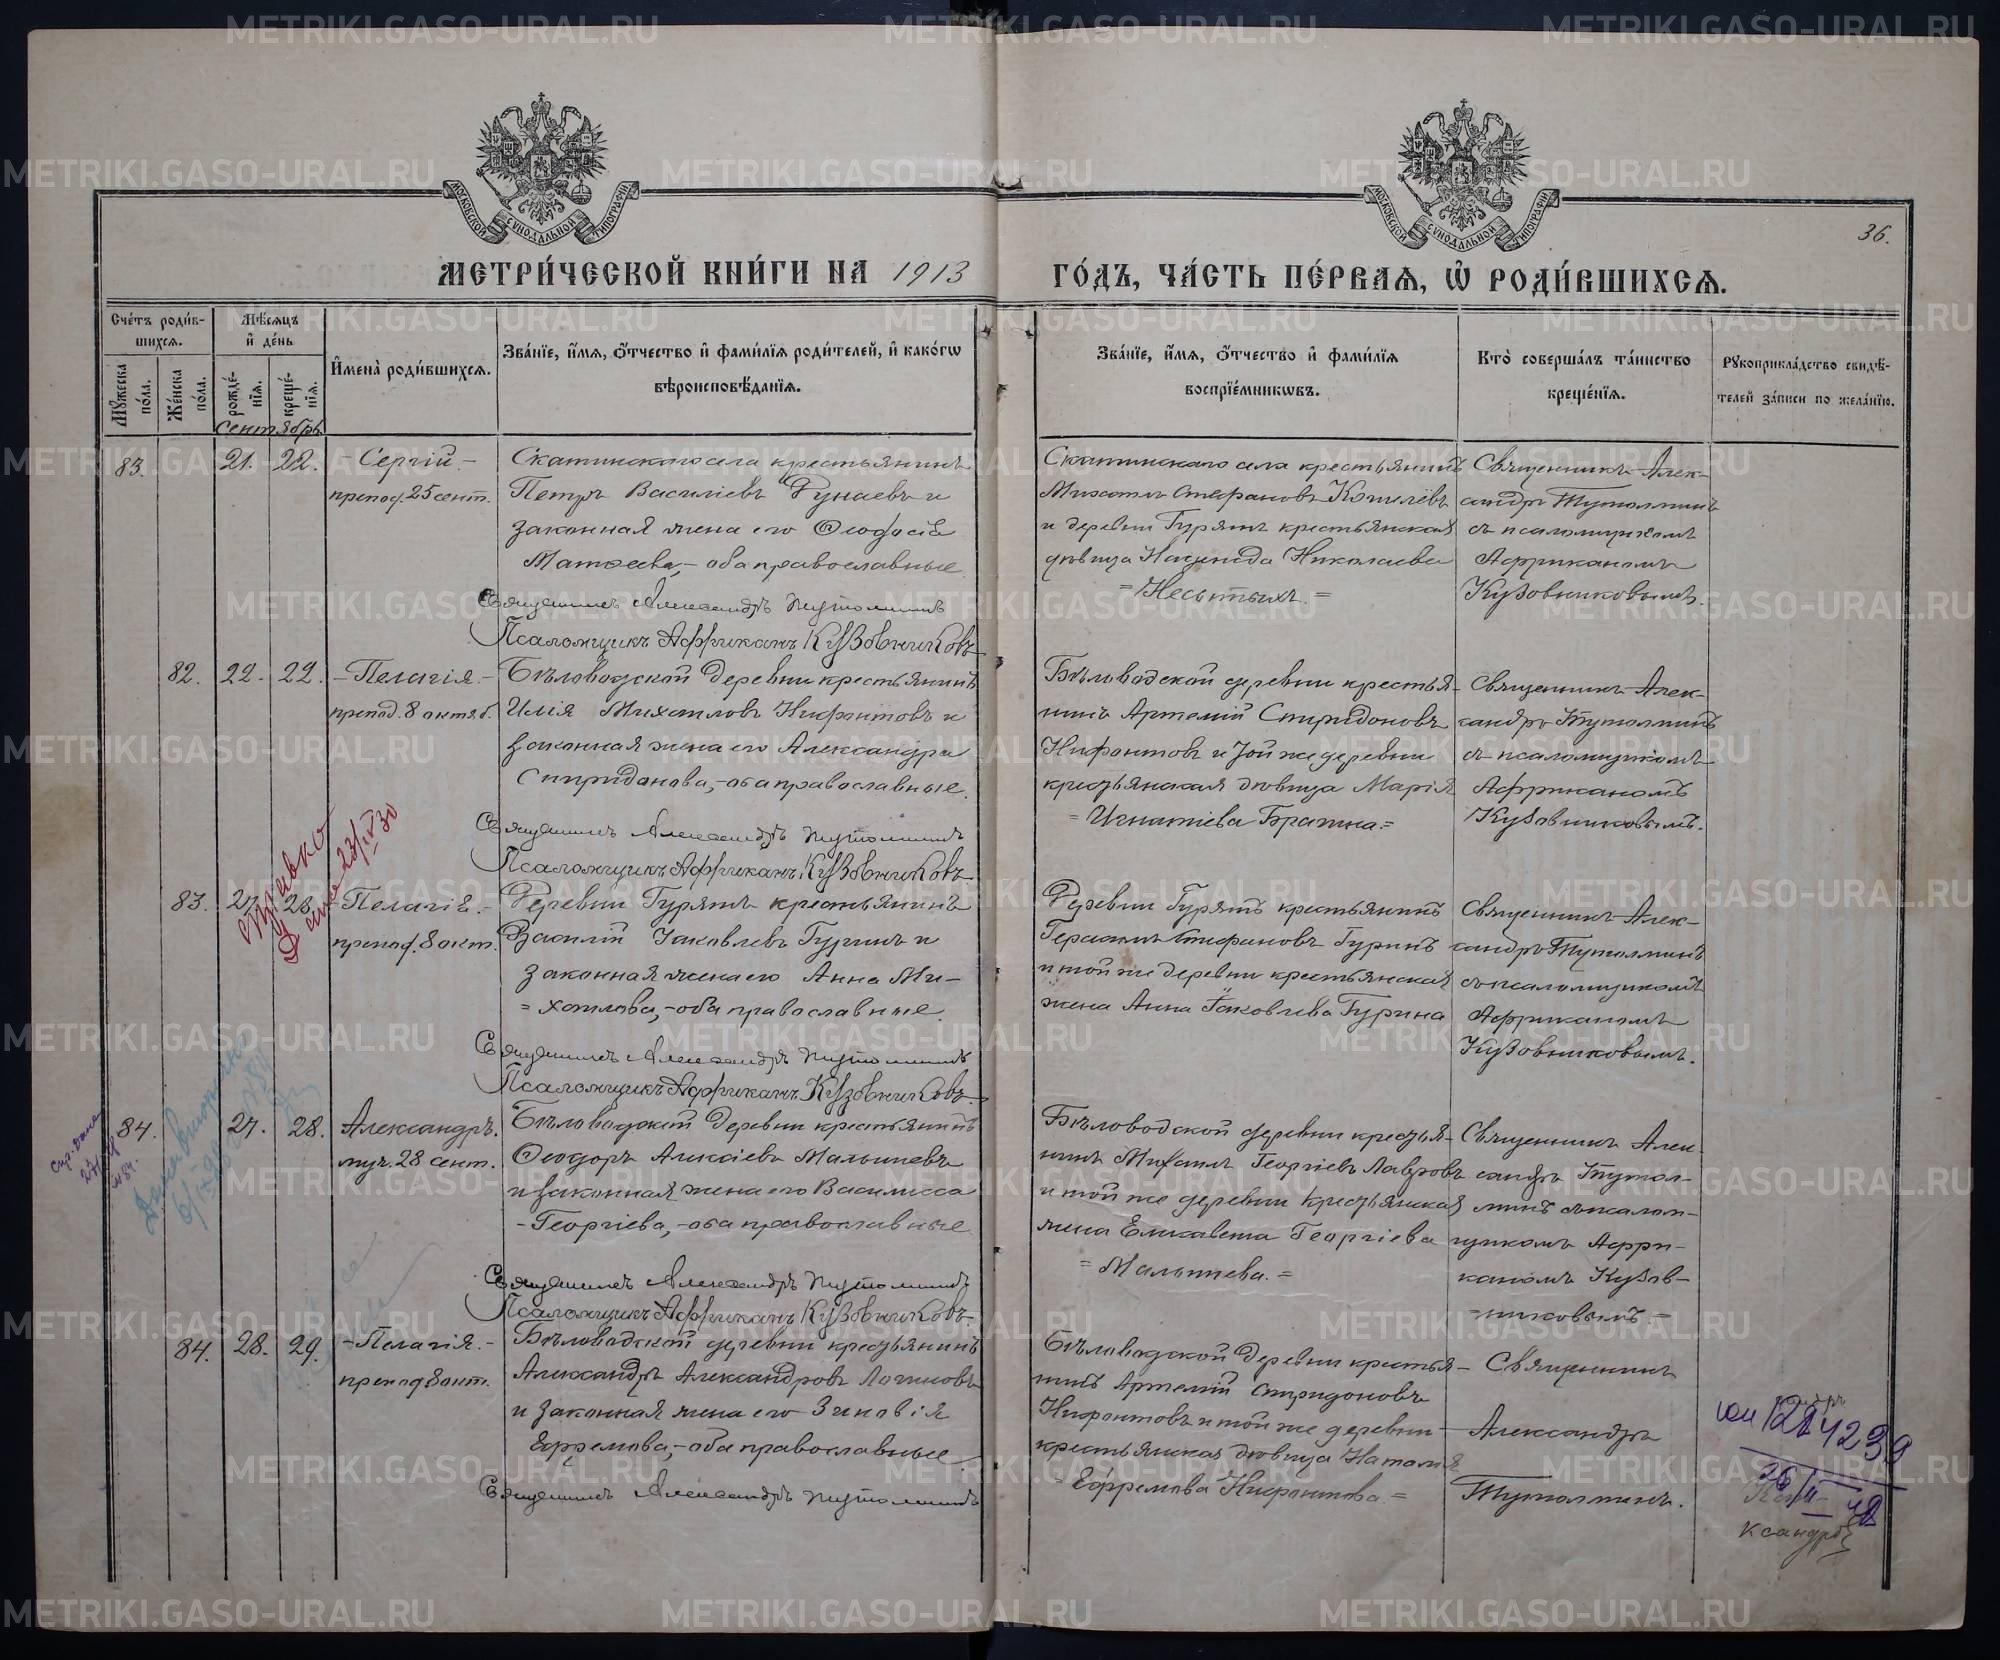 МОСКОВСКОЙ СИНОДАЛЬНОЙ ТИПОГРАФІИ
МОСКОВСКОЙ СИНОДАЛЬНОЙ ТИПОГРАФІИ
36.
МЕТРИ́ЧЕСКОЙ КНИ́ГИ НА 1913 ГО́ДЪ, ЧА́СТЬ ПЕ́РВАѦ, Ѽ РОДИ́ВШИХСѦ.
Сче́тъ роди́в-
шихсѧ.
Мꙋ́жеска по́ла.
Же́нска по́ла.
Мѣ́сѧцъ и҆ де́нь
рожде́-
нїѧ.
креще́-
нїѧ.
И҆мена̀ роди́вшихсѧ.
Зва́нїе, и҆́мѧ, ѻ҆́тчество и҆ фами́лїѧ роди́телей, и҆ како́гѡ
вѣроисповѣ́данїѧ.
Зва́нїе, и҆́мѧ, ѻ҆́тчество и҆ фами́лїѧ
воспрїе́мникѡвъ.
Кто̀ соверша́лъ та́инство
креще́нїѧ.
Рꙋкоприкла́дство свидѣ́-
телей за́писи по жела́нїю.
Сентябрь
83. 21. 22. -Сергій.-
препод. 25 сент.
Скатинскаго села крестьянинъ
Петръ Василіевъ Рунаевъ и
законная жена его Ѳеодосія
Матѳеева,- оба православные.
Священникъ Александръ Тутолминъ
Псаломщикъ Африканъ Кузовниковъ
Скатинскаго села крестьянинъ
Михаилъ Стефановъ Кошелёвъ
и деревни Гурятъ крестьянская
дѣвица Надежда Николаева
=Несытыхъ.=
Священникъ Алек-
сандръ Тутолминъ
съ псаломщикомъ
Африканомъ
Кузовниковымъ.
82. 22. 22. -Пелагія.-
препод. 8 октяб.
Бѣловодской деревни крестьянинъ
Илія Михаиловъ Нифонтовъ и
законная жена его Александра
Спиридонова,-оба православные.
Священникъ Александръ Тутолминъ
Псаломщикъ Африканъ Кузовниковъ
Бѣловодской деревни крестья-
нинъ Артемій Спиридоновъ
Нифонтовъ и той же деревни
крестьянская дѣвица Марія
=Игнатіева Брагина.=
Священникъ Алек-
сандръ Тутолминъ
съ псаломщикомъ
Африканомъ
Кузовниковымъ.
83. 27. 28. -Пелагія.-
препод. 8 окт.
Деревни Гурятъ крестьянинъ
Василій Іаковлевъ Гуринъ и
законная жена его Анна Ми-
=хаилова,-оба православные.
Священникъ Александръ Тутолминъ
Псаломщикъ Африканъ Кузовниковъ
Деревни Гурятъ крестьянинъ
Герасимъ Стефановъ Гуринъ
и той же деревни крестьянская
жена Анна Іаковлева Гурина
Священникъ Алек-
сандръ Тутолминъ
съ псаломщикомъ
Африканомъ
Кузовниковымъ.
84. 27. 28. Александръ.
муч. 28 сент.
Бѣловодской деревни крестьянинъ
Ѳеодоръ Алексіевъ Малышевъ
и законная жена его Василисса
-Георгіева,-оба православные
Священникъ Александръ Тутолминъ
Псаломщикъ Африканъ Кузовниковъ.
Бѣловодской деревни крестья-
нинъ Михаилъ Георгіевъ Лавровъ
и той же деревни крестьянская
жена Елисавета Георгіева
=Малышева.=
Священникъ Алек-
сандръ Тутол-
минъ съ псалом-
щикомъ Афри-
каномъ Кузов-
=никовымъ.=
84. 28. 29. -Пелагія.-
препод. 8 окт.
Бѣловодской деревни крестьянинъ
Александръ Александровъ Логиновъ
и законная жена его Зиновія
Ефремова,-оба православные.
Священникъ Александръ Тутолминъ
Бѣловодской деревни крестья-
нинъ Артемій Спиридоновъ
Нифонтовъ и той же деревни
крестьянская дѣвица Наталія
=Ефремова Нифонтова.=
Священникъ
Александръ
Тутолминъ.
METRIKI.GASO-URAL.RU